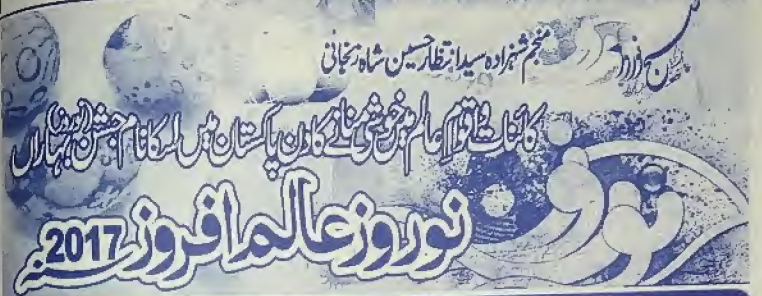 منجم شہزادہ سید انتظار حسین شاہ زنجانی
کائنات و اقوام عالم میں خوشی منانے کا دن پاکستان میں اسکا نام جشن (نوروز) بہاراں
نوروز عالم افروز سنہ 2017
نوروز